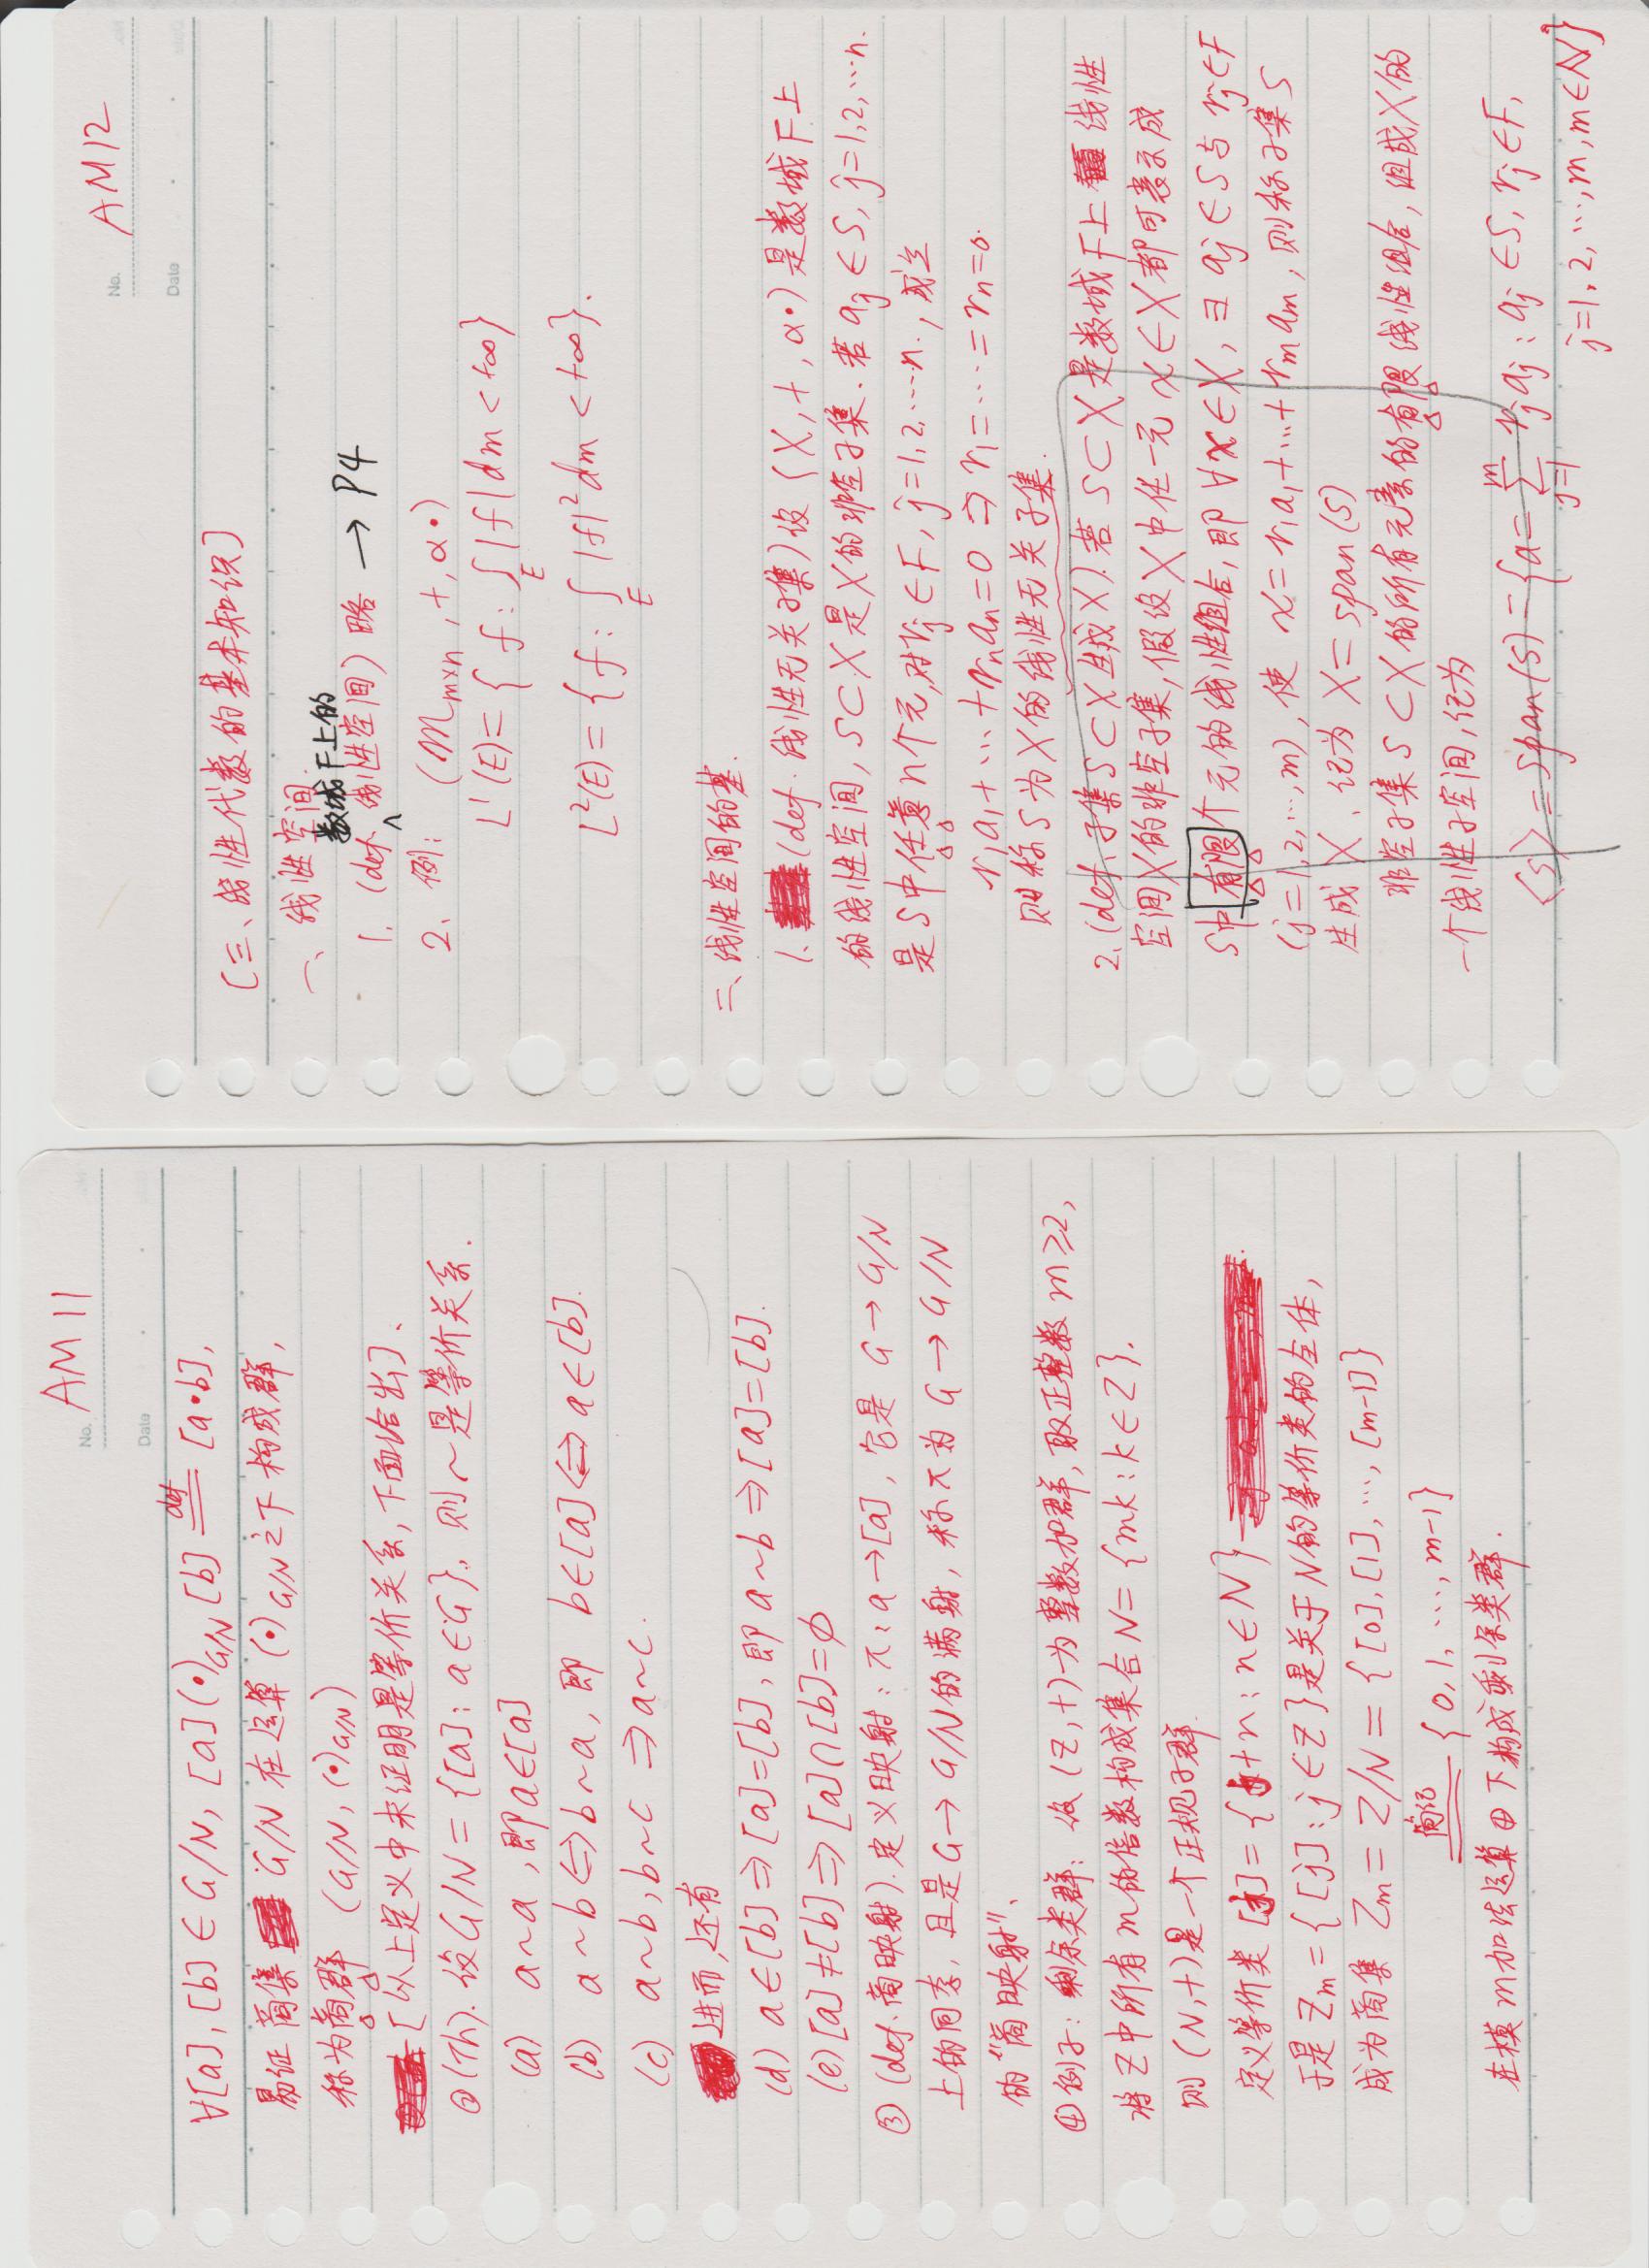 No. AM 11
Date
∀[a], [b] ∈ G/N, [a] (•)_{G/N} [b] \overset{def}{=} [a•b],
易证 商集 G/N 在运算 (•)_{G/N} 之下 构成群,
称为商群 (G/N, (•)_{G/N})
[以上定义中未证明是等价关系, 下面给出]、
② (Th). 设 G/N = {[a]: a∈G}, 则 ~ 是等价关系.
(a) a~a, 即 a∈[a]
(b) a~b ⇔ b~a, 即 b∈[a] ⇔ a∈[b].
(c) a~b, b~c ⇒ a~c.
进而, 还有
(d) a∈[b] ⇒ [a]=[b], 即 a~b ⇒ [a]=[b].
(e) [a]≠[b] ⇒ [a]∩[b]=∅
③ (def. 商映射). 定义映射: π: a→[a], 它是 G→G/N
上的同态, 且是 G→G/N 的满射, 称 π 为 G→G/N
的“商映射”、
④ 例子: 剩余类群: 设 (Z,+) 为整数加群, 取正整数 m≥2,
将 Z 中所有 m 的倍数构成集合 N={mk: k∈Z}.
则 (N,+) 是一个正规子群.
定义等价类 [j]={j+n: n∈N}
于是 Z_m={[j]: j∈Z} 是关于 N 的等价类的全体,
成为商集 Z_m = Z/N = {[0],[1],…,[m-1]}
\overset{简记}{=} {0, 1, …, m-1}
在模 m 加法运算 ⊕ 下构成剩余类群.
No. AM12
Date
[三、线性代数的基本知识]
一、线性空间.
数域F上的
1. (def. 线性空间) 略 → P4
2、例: (M_{m×n}, +, α•)
L¹(E) = { f: ∫_E |f| dm < +∞}
L²(E) = { f: ∫_E |f|² dm < +∞}.
二、线性空间的基.
1. (def. 线性无关子集) 设 (X, +, α•) 是数域 F 上
的线性空间, S⊂X 是 X 的非空子集. 若 a_j∈S, j=1,2,…n.
是 S 中任意 n 个元, 对 r_j∈F, j=1,2,…n., 成立
r₁a₁+…+r_n a_n=0 ⇒ r₁=…=r_n=0.
则称 S 为 X 的线性无关子集.
2. (def. 子集 S⊂X 生成 X). 若 S⊂X 是数域 F 上 线性
空间 X 的非空子集, 假设 X 中任一元 x∈X 都可表示成
S 中有限个元的线性组合, 即 ∀x∈X, ∃ a_j∈S 与 r_j∈F
(j=1,2,…,m), 使 x=r₁a₁+…+r_m a_m, 则称子集 S
生成 X、记为 X=span(S)
非空子集 S⊂X 的所有元素的有限线性组合, 组成 X 的
一个线性子空间, 记为
⟨S⟩ = span(S) = {a=∑_{j=1}^{m} r_j a_j: a_j∈S, r_j∈F,
j=1,2,…,m, m∈N}